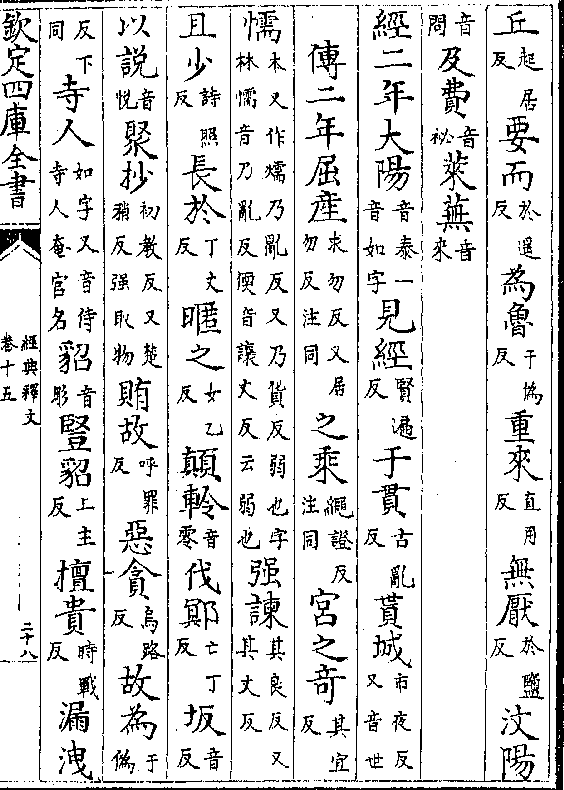 丘起居反要而於遥反為魯于偽反重來直用反無厭於鹽反汶陽
音問及費音秘萊蕪音來
經二年大陽音泰一音如字見經賢遍反于貫古亂反貰城市夜反又音世
傳二年屈産求勿反又居勿反注同之乘繩證反注同宫之竒其宜反
懦本又作愞乃亂反又乃貨反弱也字林懦音乃亂反愞音讓犬反云弱也强諫其良反又其丈反
且少詩照反長於丁丈反暱之女乙反顛軨音零伐鄍亡丁反坂音反
以説音悦聚抄初教反又楚稍反强取物賄故呼罪反惡貪烏路反故為于偽
反下同寺人如字又音侍寺人奄官名貂音彫豎貂上主反擅貴時戰反漏洩
欽定四庫全書
經典釋文
卷十五
二十八